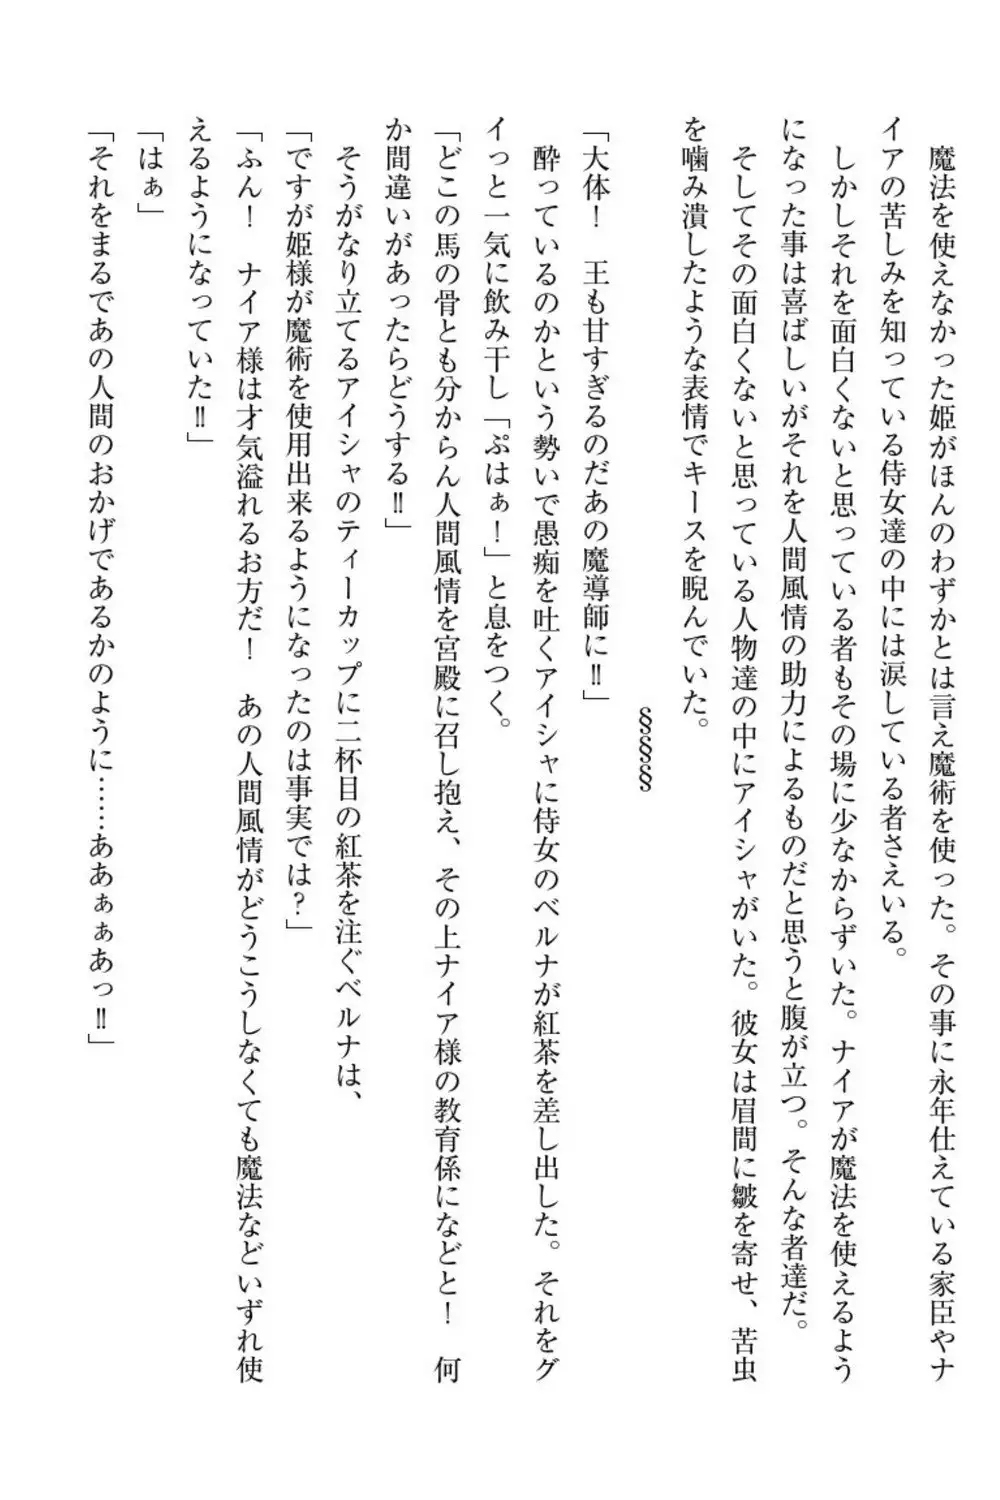 魔法を使えなかった姫がほんのわずかとは言え魔術を使った。その事に永年仕えている家臣やナ
イアの苦しみを知っている侍女達の中には涙している者さえいる。
　しかしそれを面白くないと思っている者もその場に少なからずいた。ナイアが魔法を使えるよう
になった事は喜ばしいがそれを人間風情の助力によるものだと思うと腹が立つ。そんな者達だ。
　そしてその面白くないと思っている人物達の中にアイシャがいた。彼女は眉間に皺を寄せ、苦虫
を噛み潰したような表情でキースを睨んでいた。
§§§
「大体！　王も甘すぎるのだあの魔導師に‼」
　酔っているのかという勢いで愚痴を吐くアイシャに侍女のベルナが紅茶を差し出した。それをグ
イっと一気に飲み干し「ぷはぁ！」と息をつく。
「どこの馬の骨とも分からん人間風情を宮殿に召し抱え、その上ナイア様の教育係になどと！　何
か間違いがあったらどうする‼」
　そうがなり立てるアイシャのティーカップに二杯目の紅茶を注ぐベルナは、
「ですが姫様が魔術を使用出来るようになったのは事実では？」
「ふん！　ナイア様は才気溢れるお方だ！　あの人間風情がどうこうしなくても魔法などいずれ使
えるようになっていた‼」
「はぁ」
「それをまるであの人間のおかげであるかのように……ああぁぁあっ‼」